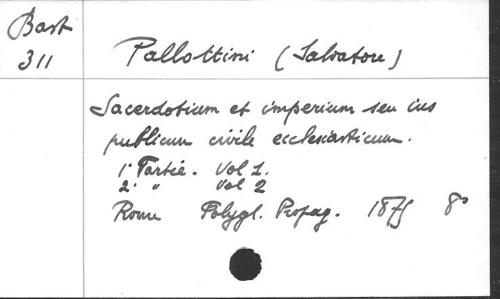 Bast
311
Pallottini (Salvatore)
Sacerdotium et imperium seu ius
publicum civile ecclesiasticum.
1e Partie. Vol 1.
2e " Vol 2
Rome Polygl. Propag. 1875 8°